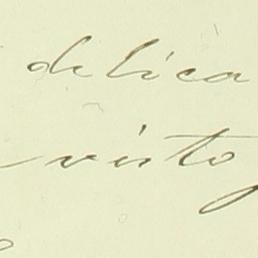 delica
visto